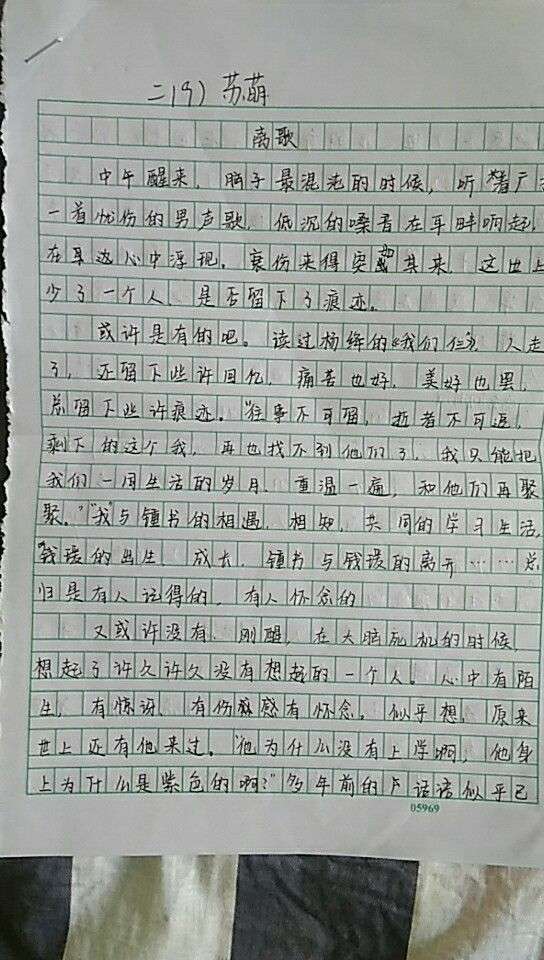 二(9) 苏萌
离歌
中午醒来，脑子最混沌的时候，听着广
一首忧伤的男声歌，低沉的嗓音在耳畔响起，
在耳边心中浮现。哀伤来得突如其来，这世上
少了一个人，是否留下了痕迹。
或许是有的吧。读过杨绛的《我们仨》，人走
了，还留下些许回忆，痛苦也好，美好也罢，
总留下些许痕迹。“往事不可留，逝者不可追，
剩下的这个我，再也找不到他们了，我只能把
我们一同生活的岁月，重温一遍，和他们再聚
聚。”“我”与锺书的相遇，相知，共同的学习生活，
钱瑗的出生，成长，锺书与钱瑗的离开……总
归是有人记得的，有人怀念的
又或许没有，刚醒，在大脑死机的时候，
想起了许久许久没有想起的一个人。心中有陌
生，有惊讶，有伤感有怀念。似乎想，原来
世上还有他来过。“他为什么没有上学啊，他身
上为什么是紫色的啊？”多年前的话语似乎已
05969